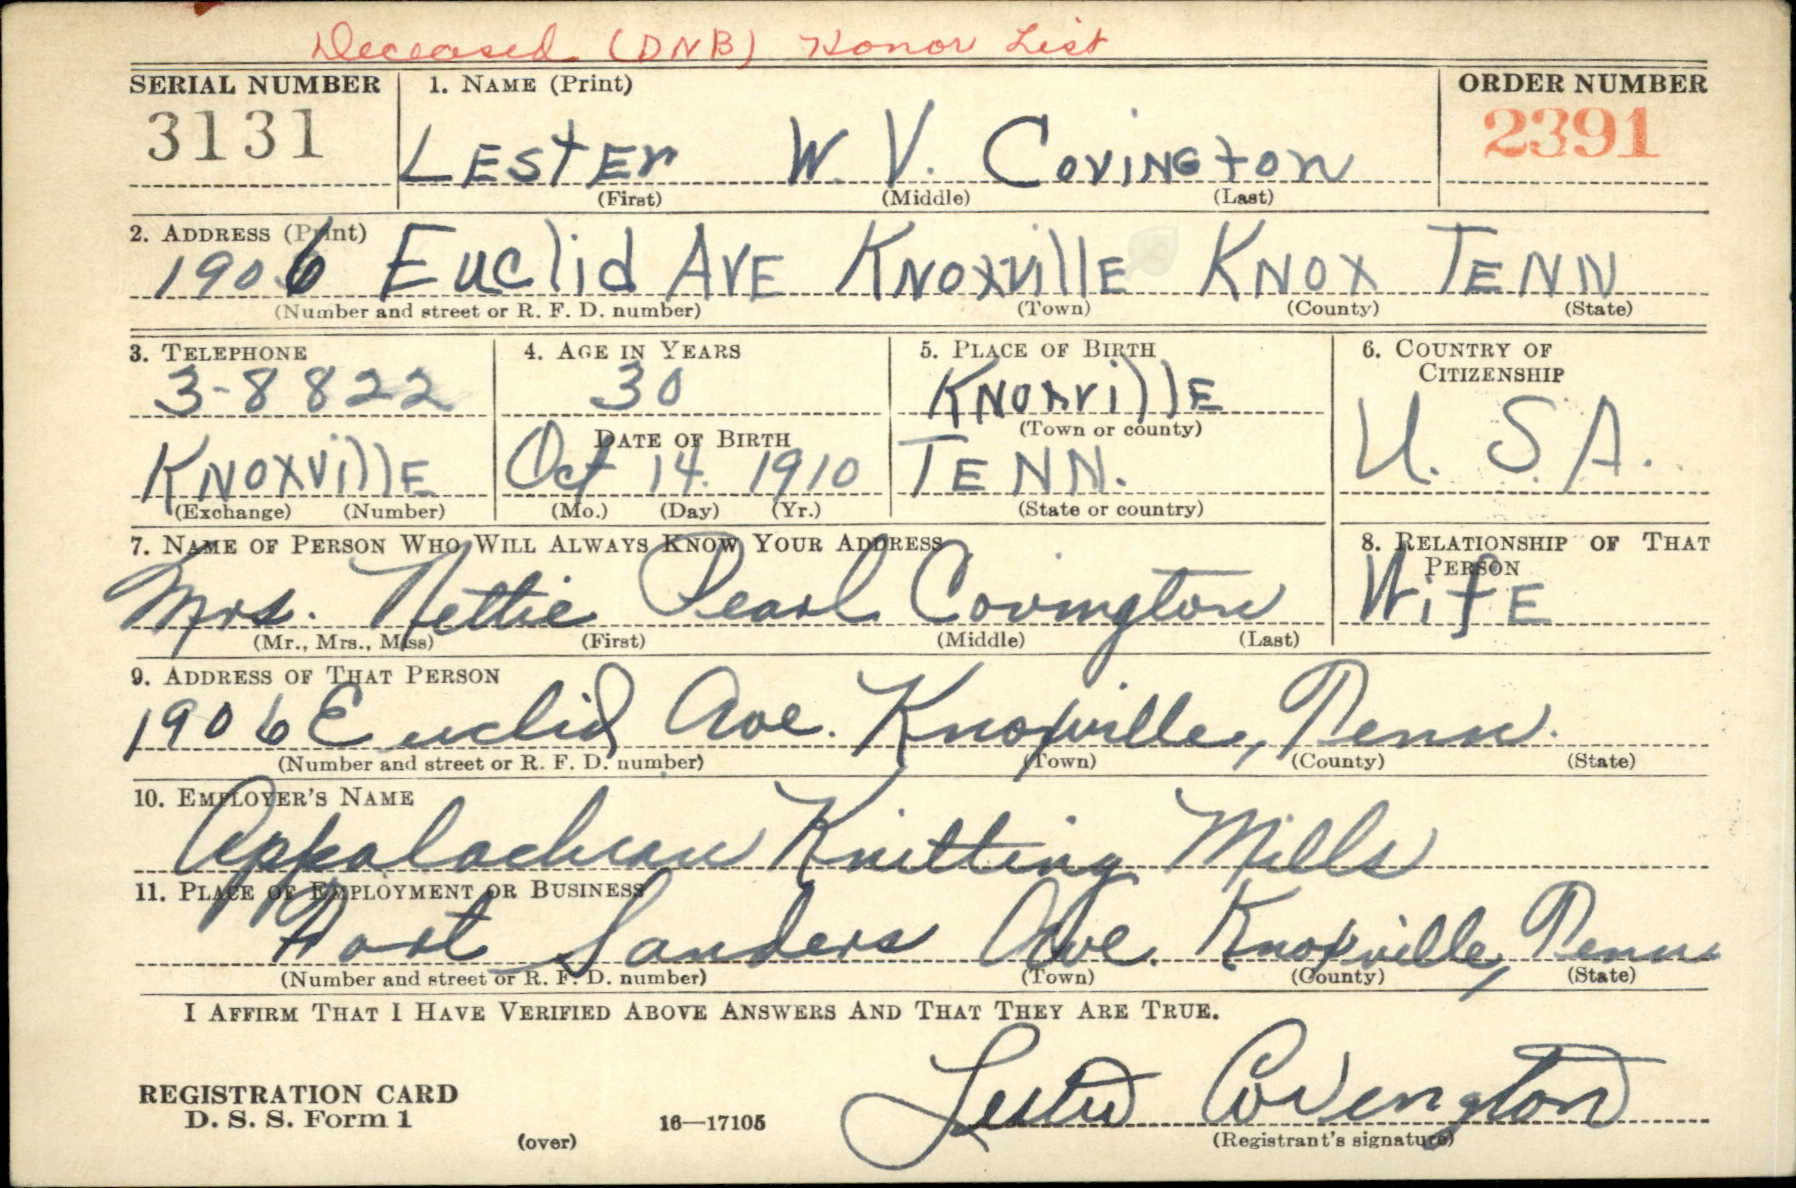 Deceased (DNB) Honor List
SERIAL NUMBER 1. NAME (Print) ORDER NUMBER
3131 LESTEr W. V. COVINGTON 2391
(First) (Middle) (Last)
2. ADDRESS (Print)
1906 Euclid AVE KNOXVillE KNOX TENN
(Number and street or R. F. D. number) (Town) (County) (State)
3. TELEPHONE 4. AGE IN YEARS 5. PLACE OF BIRTH 6. COUNTRY OF
CITIZENSHIP
3-8822 30 KNOXVillE
(Town or county)
DATE OF BIRTH
KNOXVillE Oct 14. 1910 TENN. U. S. A.
(Exchange) (Number) (Mo.) (Day) (Yr.) (State or country)
7. NAME OF PERSON WHO WILL ALWAYS KNOW YOUR ADDRESS 8. RELATIONSHIP OF THAT
PERSON
Mrs. Nettie Pearl Covington WifE
(Mr., Mrs., Miss) (First) (Middle) (Last)
9. ADDRESS OF THAT PERSON
1906 Euclid Ave. Knoxville, Tenn.
(Number and street or R. F. D. number) (Town) (County) (State)
10. EMPLOYER'S NAME
Appalachian Knitting Mills
11. PLACE OF EMPLOYMENT OR BUSINESS
Fort Sanders Ave. Knoxville, Tenn
(Number and street or R. F. D. number) (Town) (County) (State)
I AFFIRM THAT I HAVE VERIFIED ABOVE ANSWERS AND THAT THEY ARE TRUE.
REGISTRATION CARD
D. S. S. Form 1 16—17105 Lester Covington
(over) (Registrant's signature)